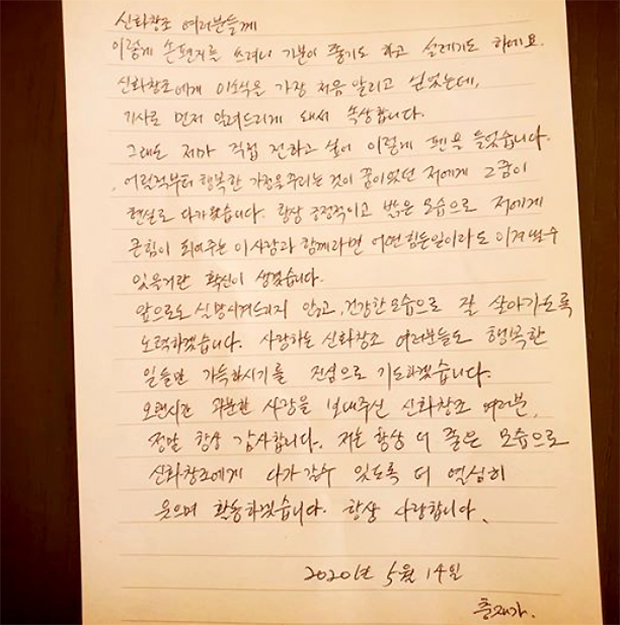 신화창조 여러분들께
이렇게 손편지를 쓰려니 기분이 좋기도 하고 설레기도 하네요.
신화창조에게 이소식을 가장 처음 알리고 싶었는데,
기사로 먼저 알려드리게 돼서 속상합니다.
그래도 제가 직접 전하고 싶어 이렇게 펜을 들었습니다.
어릴적부터 행복한 가정을꾸리는 것이 꿈이였던 저에게 그꿈이
현실로 다가왔습니다. 항상 긍정적이고 밝은 모습으로 저에게
큰힘이 되어주는 이사람과 함께라면 어떤힘든일이라도 이겨낼수
있을거란 확신이 생겼습니다.
앞으로도 실망시켜드리지 않고, 건강한모습으로 잘 살아가도록
노력하겠습니다. 사랑하는 신화창조 여러분들도 행복한
일들만 가득하시기를 진심으로 기도하겠습니다.
오랜시간 과분한 사랑을 보내주신 신화창조 여러분,
정말 항상 감사합니다. 저는 항상 더 좋은 모습으로
신화창조에게 다가갈수 있도록 더 열심히
웃으며 활동하겠습니다. 항상 사랑합니다.
2020년 5월 14일
충재가.